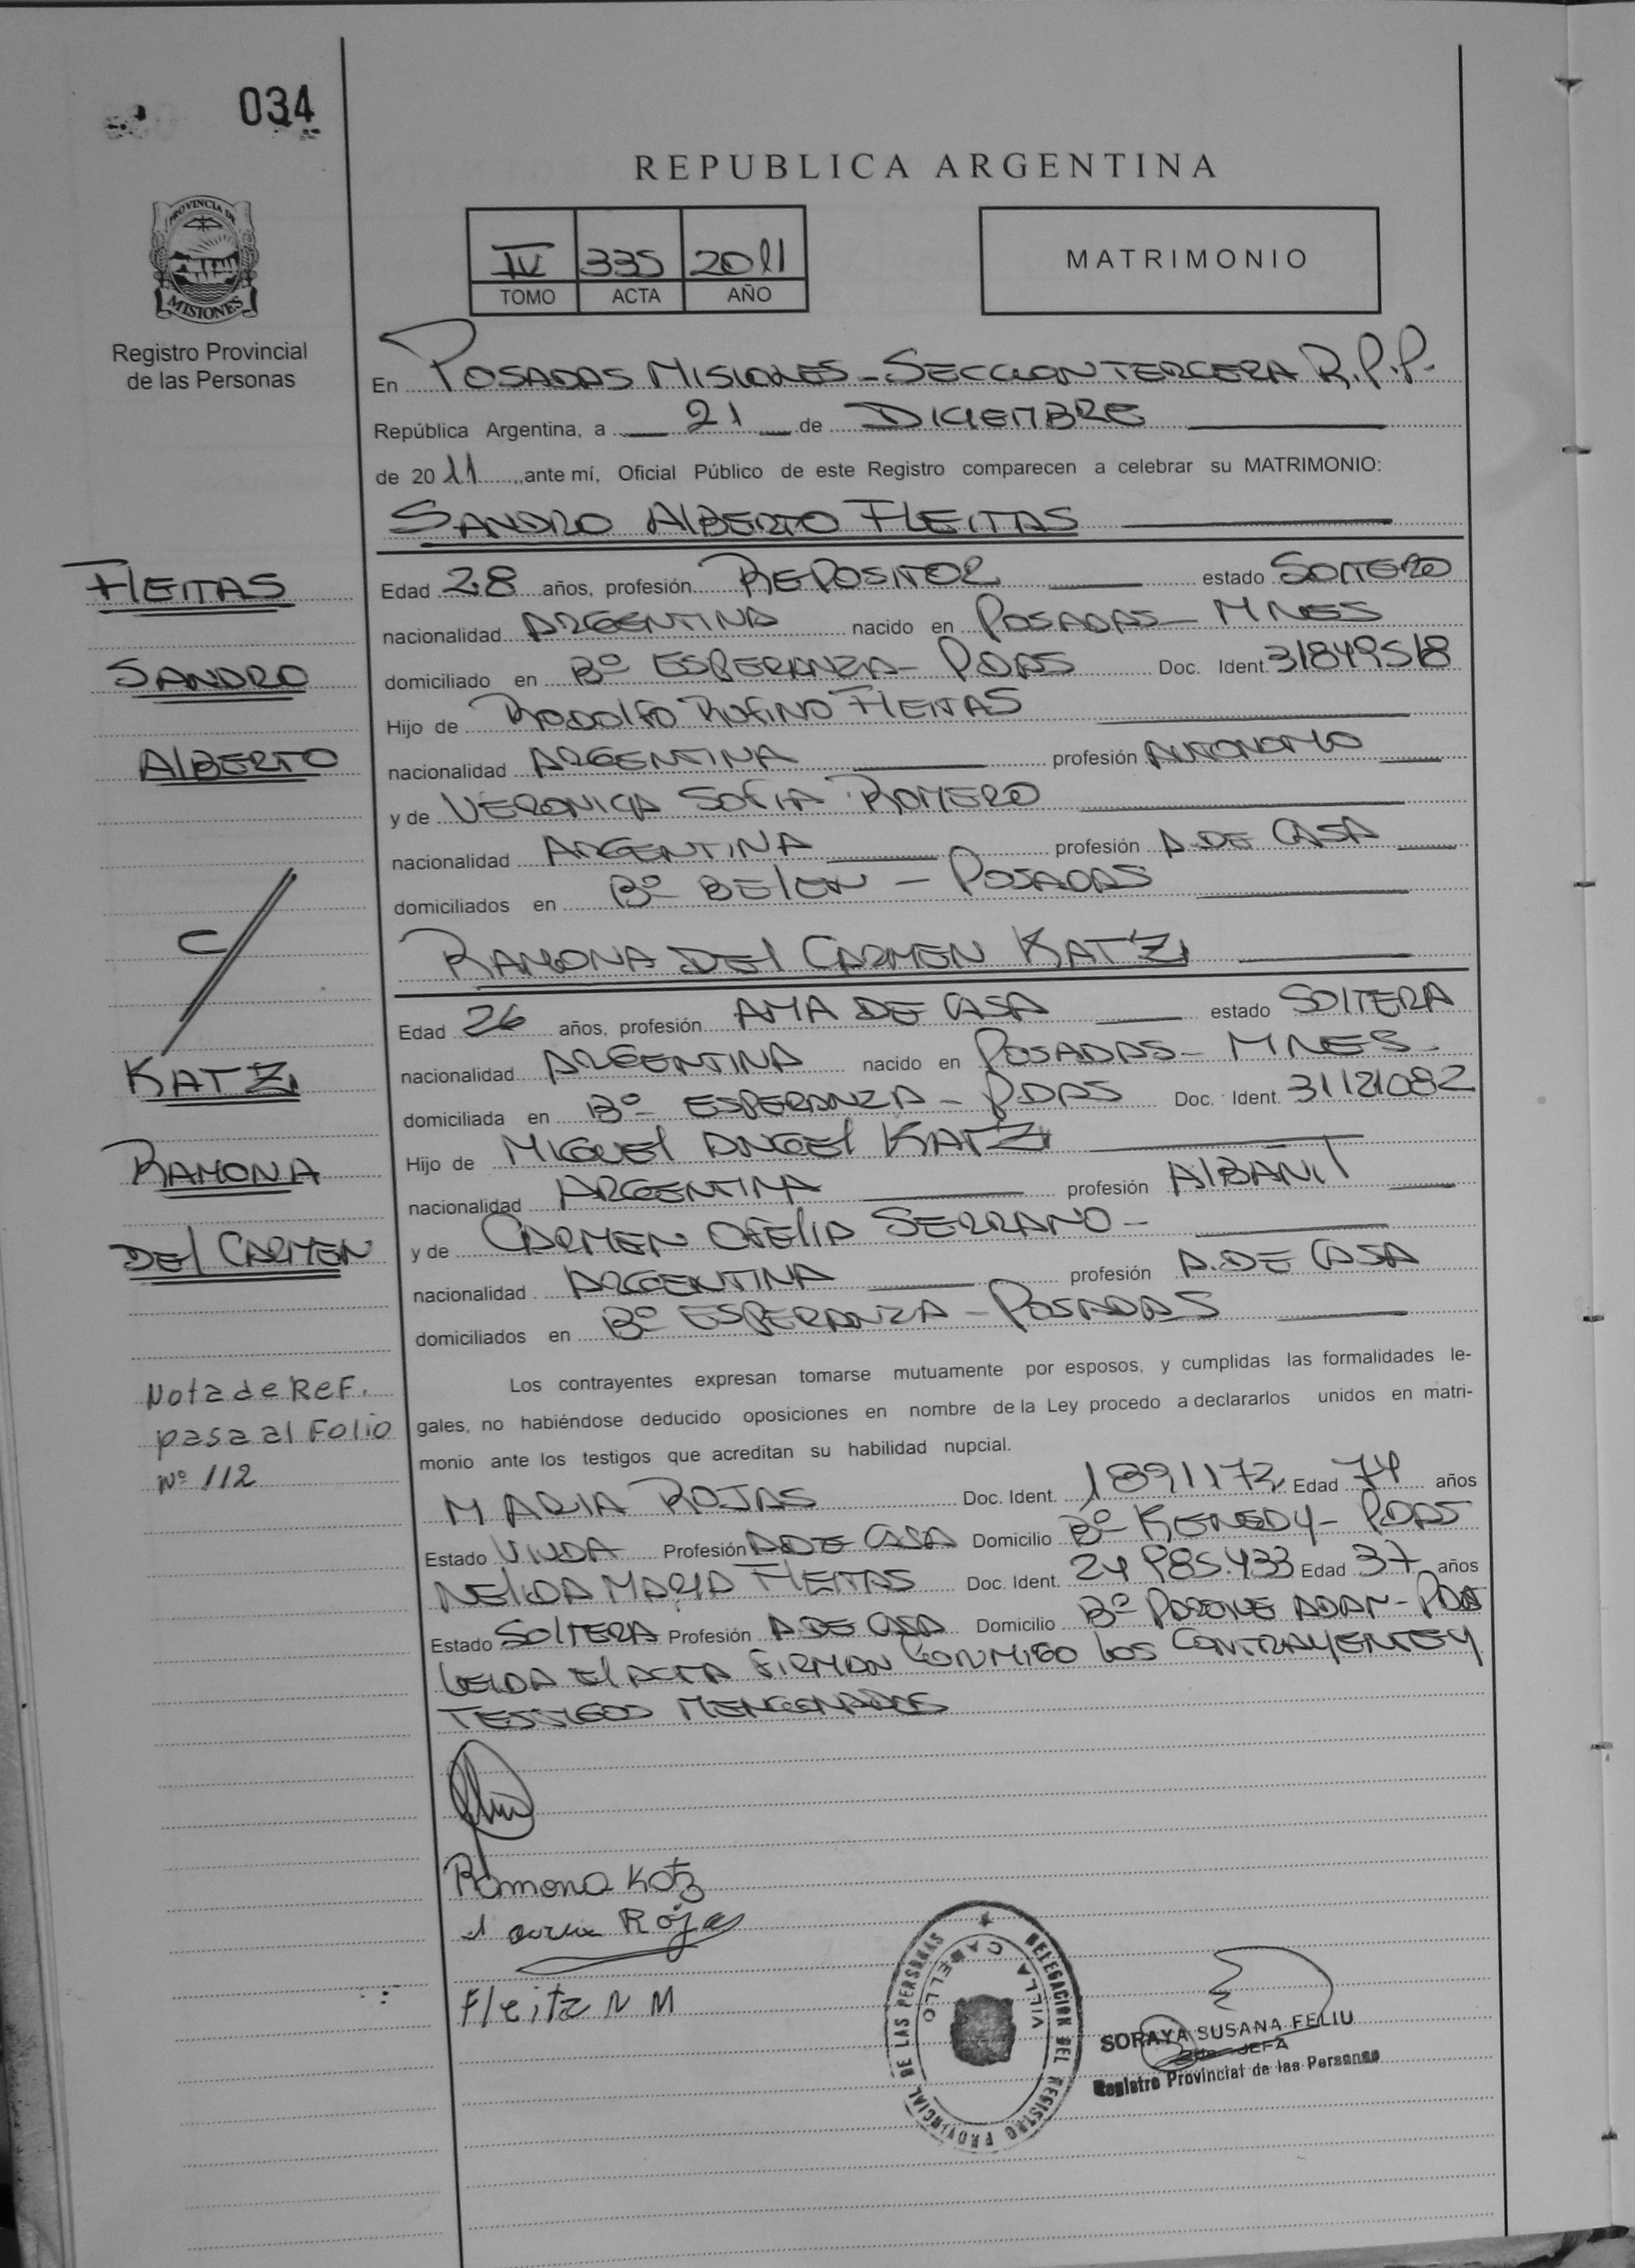 034
REPUBLICA ARGENTINA
PROVINCIA DE
MISIONES
Registro Provincial
de las Personas
IV 335 2011
TOMO ACTA AÑO
MATRIMONIO
En POSADAS MISIONES - SECCION TERCERA R.P.P.
República Argentina, a 21 de DICIEMBRE
de 2011, ante mí, Oficial Público de este Registro comparecen a celebrar su MATRIMONIO:
SANDRO ALBERTO FLEITAS
Edad 28 años, profesión REPOSITOR estado SOLTERO
nacionalidad ARGENTINA nacido en POSADAS - MNES
domiciliado en Bº ESPERANZA - PDAS Doc. Ident. 31849518
Hijo de RODOLFO RUFINO FLEITAS
nacionalidad ARGENTINA profesión AUTONOMO
y de VERONICA SOFIA ROMERO
nacionalidad ARGENTINA profesión A.DE CASA
domiciliados en Bº BELEN - POSADAS
RAMONA DEL CARMEN KATZ
Edad 26 años, profesión AMA DE CASA estado SOLTERA
nacionalidad ARGENTINA nacido en POSADAS - MNES -
domiciliada en Bº ESPERANZA - PDAS Doc. Ident. 31121082
Hijo de MIGUEL ANGEL KATZ
nacionalidad ARGENTINA profesión ALBAÑIL
y de CARMEN OFELIA SERRANO -
nacionalidad ARGENTINA profesión A.DE CASA
domiciliados en Bº ESPERANZA - POSADAS
Los contrayentes expresan tomarse mutuamente por esposos, y cumplidas las formalidades le-
gales, no habiéndose deducido oposiciones en nombre de la Ley procedo a declararlos unidos en matri-
monio ante los testigos que acreditan su habilidad nupcial.
MARIA ROJAS Doc. Ident. 1891173 Edad 74 años
Estado VIUDA Profesión A DE CASA Domicilio Bº KENEDY - PDAS
NELIDA MARIA FLEITAS Doc. Ident. 24985.433 Edad 37 años
Estado SOLTERA Profesión A.DE CASA Domicilio Bº PARQUE ADAM - PDAS
LEIDA El ACTA FIRMAN CONMIGO LOS CONTRAYENTES Y
TESTIGOS MENCIONADOS
FLEITAS
SANDRO
ALBERTO
C/
KATZ
RAMONA
DEL CARMEN
Nota de Ref.
pasa al Folio
Nº 112
Ramona Katz
Rojas
Fleita N M
DELEGACION DEL REGISTRO PROVINCIAL DE LAS PERSONAS
VILLA CABELLO
SORAYA SUSANA FELIU
JEFA
Registro Provincial de las Personas